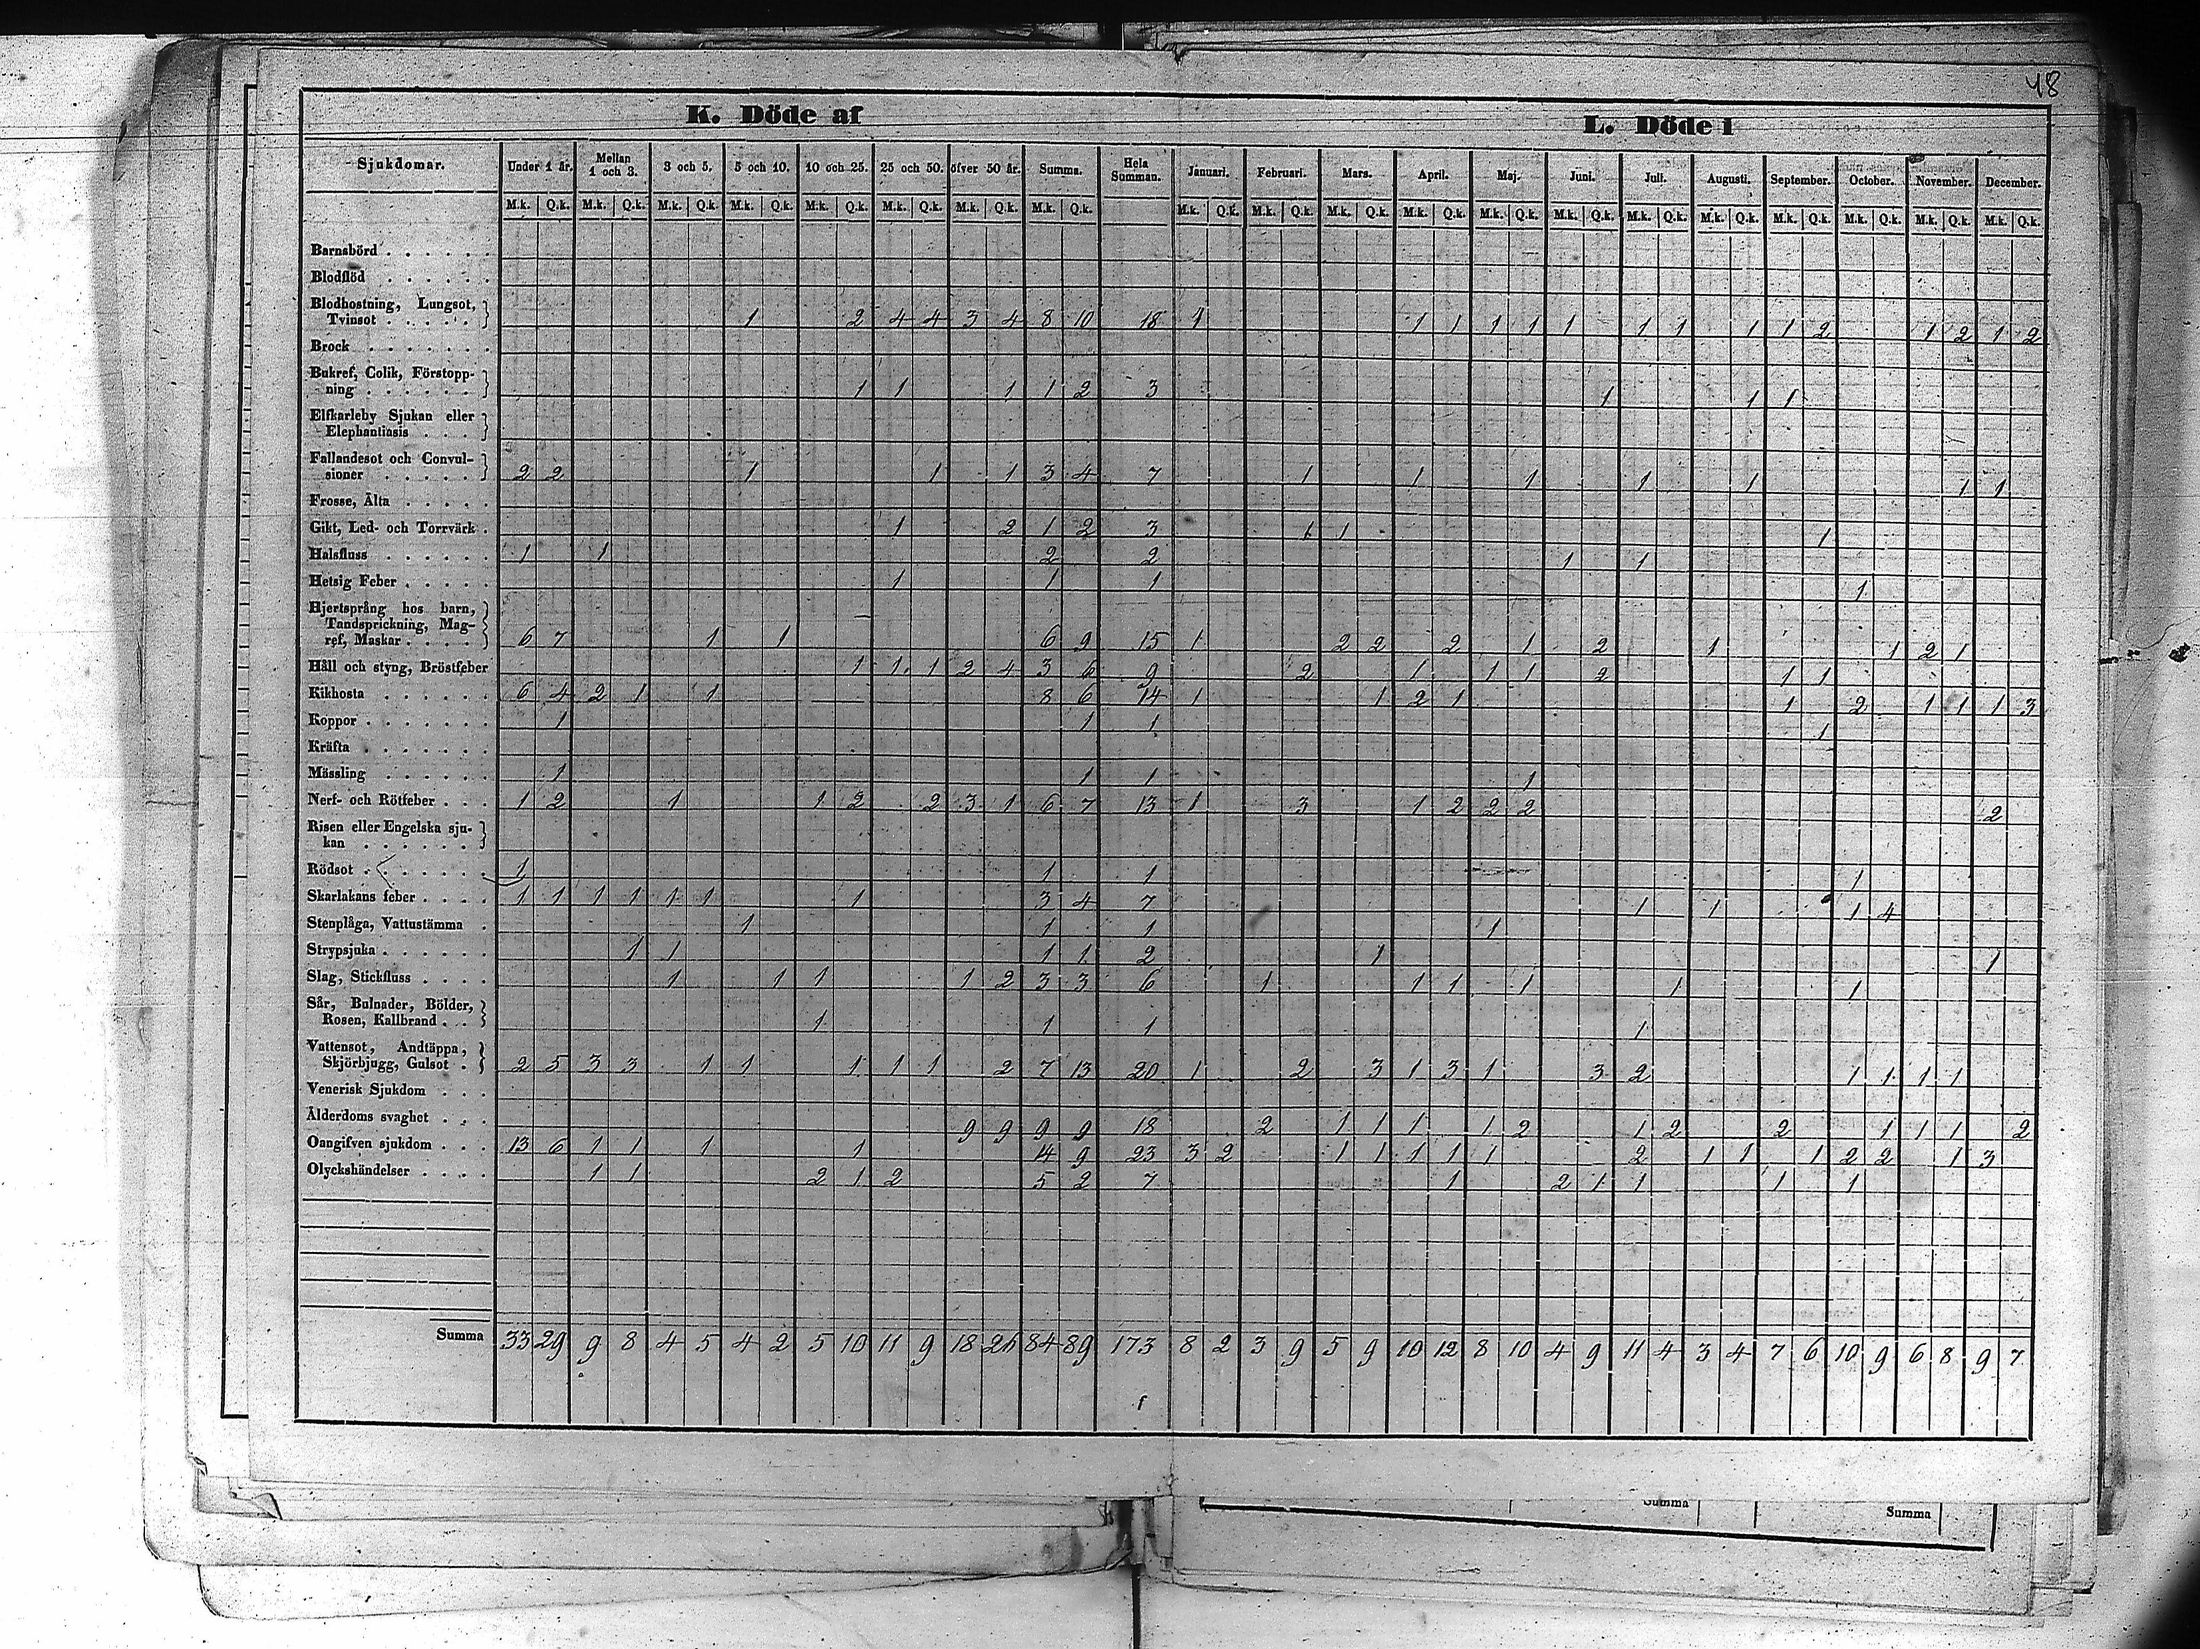 48
K. Döde af
L. Döde i
Sjukdomar. Under 1 år. Mellan 1 och 3. 3 och 5. 5 och 10. 10 och 25. 25 och 50. öfver 50 år. Summa. Hela Summan. Januari. Februari. Mars. April. Maj. Juni. Juli. Augusti. September. October. November. December.
M.k. Q.k. M.k. Q.k. M.k. Q.k. M.k. Q.k. M.k. Q.k. M.k. Q.k. M.k. Q.k. M.k. Q.k. M.k. Q.k. M.k. Q.k. M.k. Q.k. M.k. Q.k. M.k. Q.k. M.k. Q.k. M.k. Q.k. M.k. Q.k. M.k. Q.k. M.k. Q.k. M.k. Q.k. M.k. Q.k.
Barnsbörd . . . . . .
Blodflöd . . . . . .
Blodhostning, Lungsot,
Tvinsot . . . . . 1 2 4 4 3 4 8 10 18 1 1 1 1 1 1 1 1 1 1 2 1 2 1 2
Brock . . . . . . .
Bukref, Colik, Förstopp-
ning . . . . . . 1 1 1 1 2 3 1 1 1
Elfkarleby Sjukan eller
Elephantiasis . . .
Fallandesot och Convul-
sioner . . . . . 2 2 1 1 1 3 4 7 1 1 1 1 1 1 1
Frosse, Älta . . . . .
Gikt, Led- och Torrvärk . 1 2 1 2 3 1 1 1
Halsfluss . . . . . . 1 1 2 2 1 1
Hetsig Feber . . . . . 1 1 1 1
Hjertsprång hos barn,
Tandsprickning, Mag-
ref, Maskar . . . . 6 7 1 1 6 9 15 1 2 2 2 1 2 1 1 2 1
Håll och styng, Bröstfeber 1 1 1 2 4 3 6 9 2 1 1 1 2 1 1
Kikhosta . . . . . . 6 4 2 1 1 8 6 14 1 1 2 1 1 2 1 1 1 3
Koppor . . . . . . . 1 1 1 1
Kräfta . . . . . . .
Mässling . . . . . . 1 1 1 1
Nerf- och Rötfeber . . . 1 2 1 1 2 2 3 1 6 7 13 1 3 1 2 2 2 2
Risen eller Engelska sju-
kan . . . . . .
Rödsot . . . . . . . 1 1 1 1
Skarlakans feber . . . . 1 1 1 1 1 1 1 3 4 7 1 1 1 4
Stenplåga, Vattustämma . 1 1 1 1
Strypsjuka . . . . . . 1 1 1 1 2 1 1
Slag, Stickfluss . . . . 1 1 1 1 2 3 3 6 1 1 1 1 1 1
Sår, Bulnader, Bölder,
Rosen, Kallbrand . . 1 1 1 1
Vattensot, Andtäppa,
Skjörbjugg, Gulsot . 2 5 3 3 1 1 1 1 1 2 7 13 20 1 2 3 1 3 1 3 2 1 1 1 1
Venerisk Sjukdom . . .
Ålderdoms svaghet . . . 9 9 9 9 18 2 1 1 1 1 2 1 2 2 1 1 1 2
Oangifven sjukdom . . . 13 6 1 1 1 1 14 9 23 3 2 1 1 1 1 1 2 1 1 1 2 2 1 3
Olyckshändelser . . . . 1 1 2 1 2 5 2 7 1 2 1 1 1 1
Summa 33 29 9 8 4 5 4 2 5 10 11 9 18 26 84 89 173 8 2 3 9 5 9 10 12 8 10 4 9 11 4 3 4 7 6 10 9 6 8 9 7
Summa
Summa